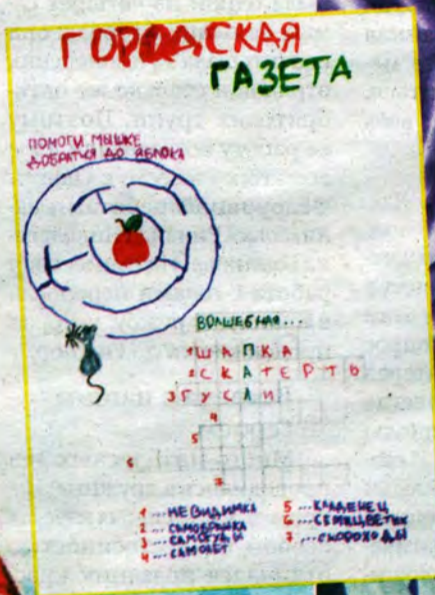 ГОРОДСКАЯ
ГАЗЕТА
ПОМОГИ МЫШКЕ
ДОБРАТЬСЯ ДО ЯБЛОКА
ВОЛШЕБНАЯ...
1 Ш А П К А
2 С К А Т Е Р Т Ь
3 Г У С Л И
4
5
6
7
1 ...НЕВИДИМКА
2 ...САМОБРАНКА
3 ...САМОГУДЫ
4 ...САМОЛЕТ
5 ...КЛАДЕНЕЦ
6 ...СЕМИЦВЕТИК
7 ...СКОРОХОДЫ